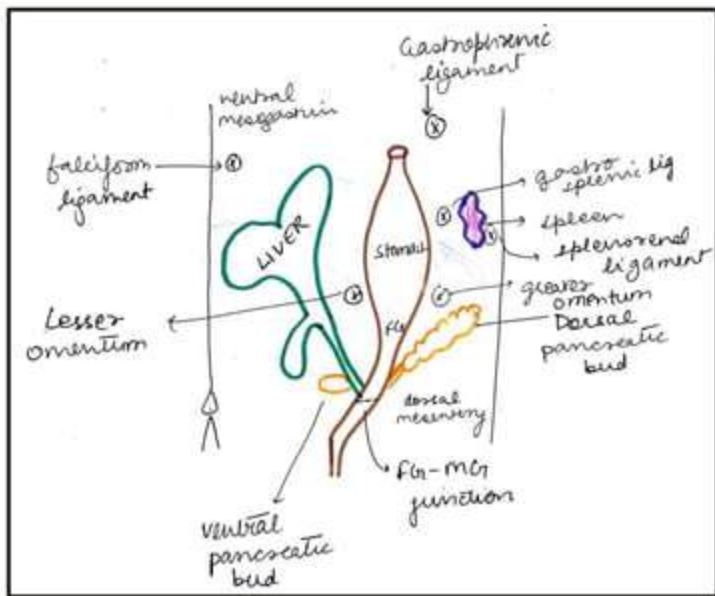 Gastrophrenic
ligament
ventral
mesogastrium
falciform
ligament
LIVER
Stomach
gastro
splenic lig
spleen
splenorenal
ligament
greater
omentum
Lesser
omentum
FG
Dorsal
pancreatic
bud
dorsal
mesentery
FG-MG
junction
ventral
pancreatic
bud